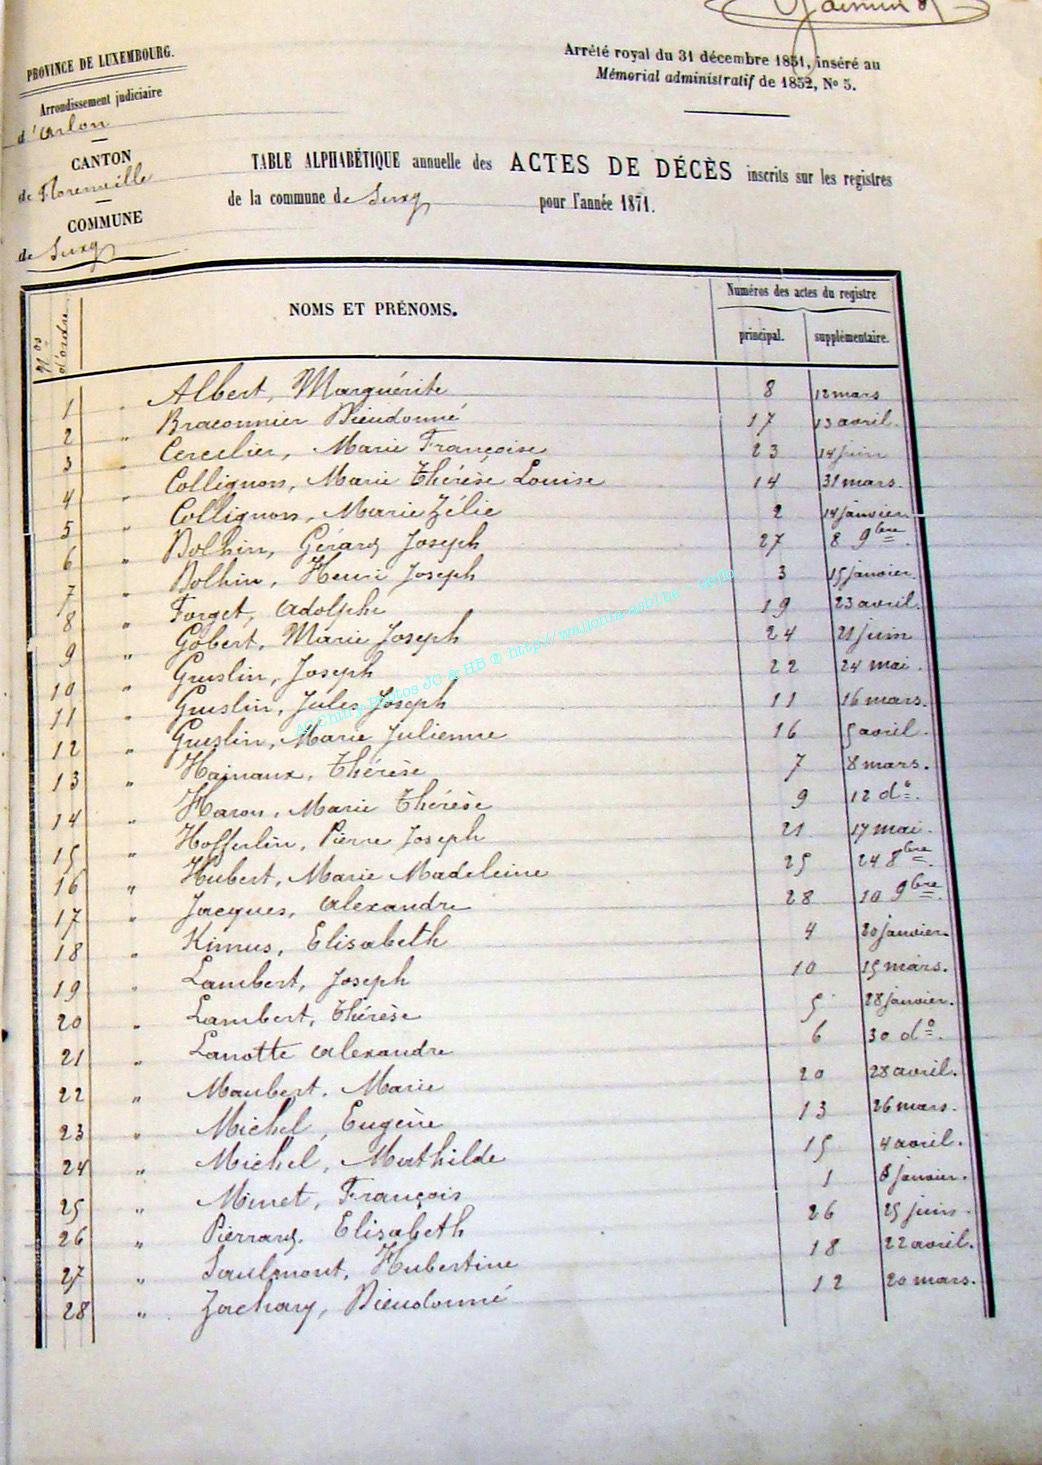 PROVINCE DE LUXEMBOURG.
Arrondissement judiciaire
d'Arlon
CANTON
de Florenville
COMMUNE
de Suxy
Arrêté royal du 31 décembre 1851, inséré au
Mémorial administratif de 1852, No 5.
TABLE ALPHABÉTIQUE annuelle des ACTES DE DÉCÈS inscrits sur les registres
de la commune de Suxy pour l'année 1871.
Nos d'ordre NOMS ET PRÉNOMS. Numéros des actes du registre
principal. supplémentaire.
1 " Albert, Marguérite 8 12 mars
2 " Braconnier Dieudonné 17 13 avril.
3 " Cerclier, Marie Françoise 23 14 juin
4 " Collignon, Marie Thérèse Louise 14 31 mars.
5 " Collignon, Marie Zélie 2 14 janvier
6 " Dolhin, Gérard Joseph 27 8 9bre.
7 " Dolhin, Henri Joseph 3 15 janvier.
8 " Forget, Adolphe 19 23 avril.
9 " Gobert, Marie Joseph 24 21 juin
10 " Gueslin, Joseph 22 24 mai.
11 " Gueslin, Jules Joseph 11 16 mars.
12 " Gueslin, Marie Julienne 16 5 avril.
13 " Hainaux, Thérèse 7 8 mars.
14 " Haron, Marie Thérèse 9 12 do.
15 " Hofferlin, Pierre Joseph 21 17 mai.
16 " Hubert, Marie Madeleine 25 24 8bre.
17 " Jacques, Alexandre 28 10 9bre.
18 " Kimus, Elisabeth 4 20 janvier.
19 " Lambert, Joseph 10 15 mars.
20 " Lambert, Thérèse 5 28 janvier.
21 " Lanotte Alexandre 6 30 do.
22 " Maubert. Marie 20 28 avril.
23 " Michel, Eugène 13 26 mars.
24 " Michel, Mathilde 15 4 avril.
25 " Minet, François 1 8 janvier.
26 " Pierrard. Elisabeth 26 25 juin.
27 " Saulmont, Hubertine 18 22 avril.
28 " Zachary, Dieudonné 12 20 mars.
Photos JC & HB ® http://wallonia-asbl.be